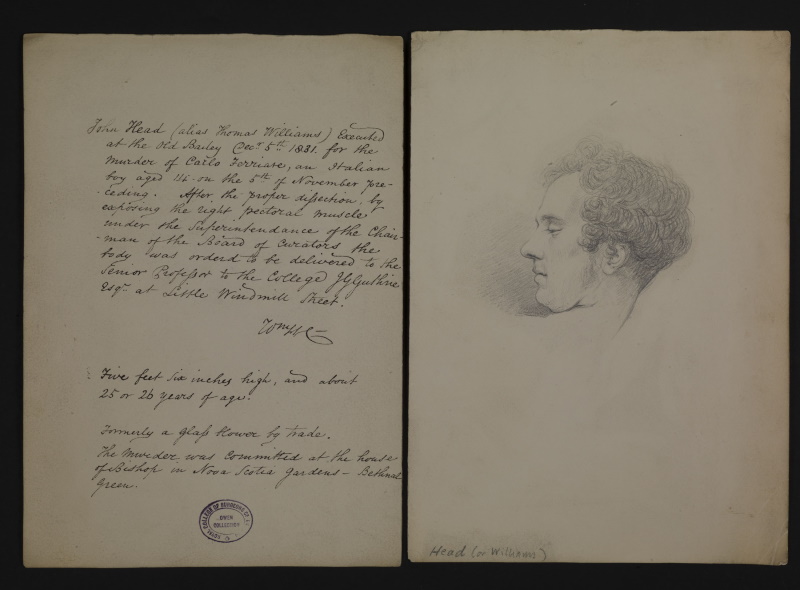 John Head (alias Thomas Williams) Executed
at the Old Bailey Decr. 5th 1831. for the
Murder of Carlo Ferriare, an Italian
boy aged 14 - on the 5th of November pre-
-ceding. After the proper dissection, by
exposing the right pectoral muscle
under the Superintendance of the Chair-
-man of the Board of Curators the
body was orderd to be delivered to the
Senior Professor to the College JG Guthrie
Esqr. at Little Windmill Street.
Five feet six inches high, and about
25 or 26 years of age.
Formerly a glass blower by trade.
The Murder was Committed at the house
of Bishop in Nova Scotia Gardens - Bethnal
Green.
ROYAL COLLEGE OF SURGEONS OF
OWEN
COLLECTION
Head (or Williams)